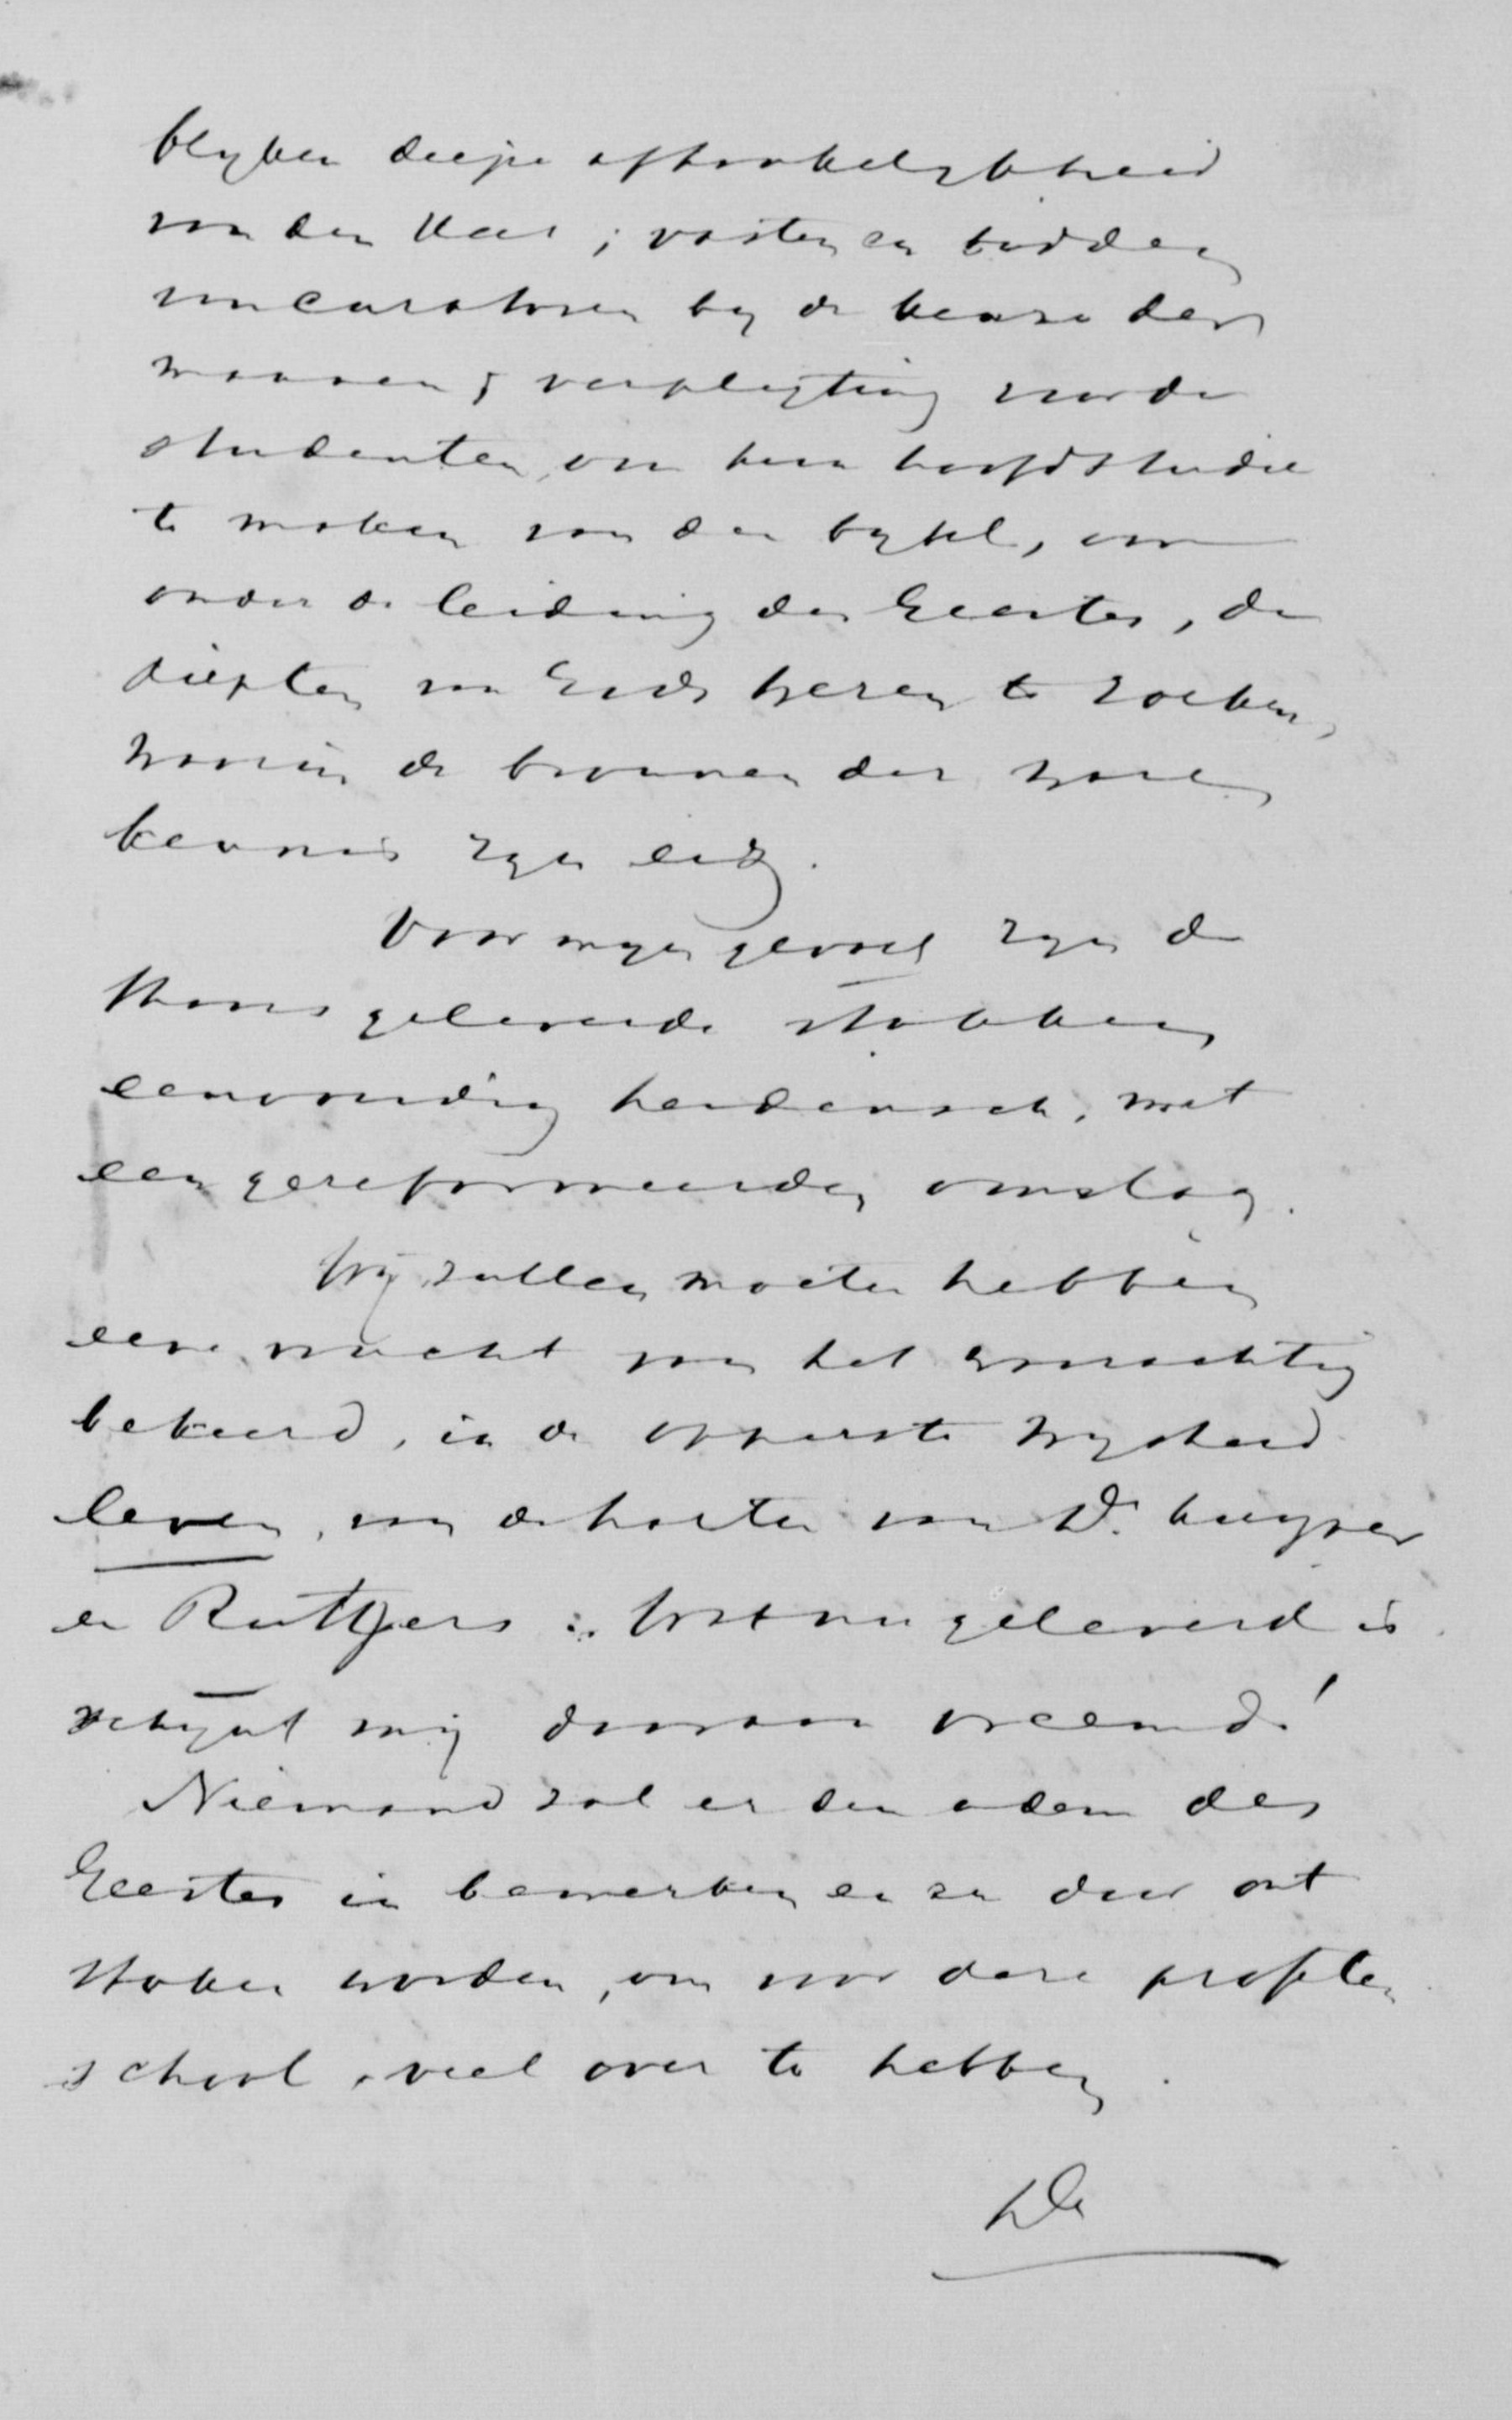 blyken diepe afhankelykheid
van den Heer; vasten en bidden
van Curatoren by de keuze der
mannen; verpligting van de
studenten, om hun hoofdstudie
te maken van den bybel, om
onder de leiding des Geestes, de
diepten van Gods wezen te zoeken,
waarin de bronnen der ware
kennis zyn enz.
Voor myn gevoel zyn de
thans geleverde stukken
eenvoudig heidensch, met
een gereformeerden omslag.
Wij zullen moeten hebben
eene vrucht van het
bekeerd, in de opperste wysheid
leven, van de harten van Dr. Kuyper
en Rutgers: Wat nu geleverd is
schynt mij daaraan vreemd!
Niemand zal er den adem des
Geestes in bemerken en er door ont
stoken worden, om voor deze profeten
school, veel over te hebben.